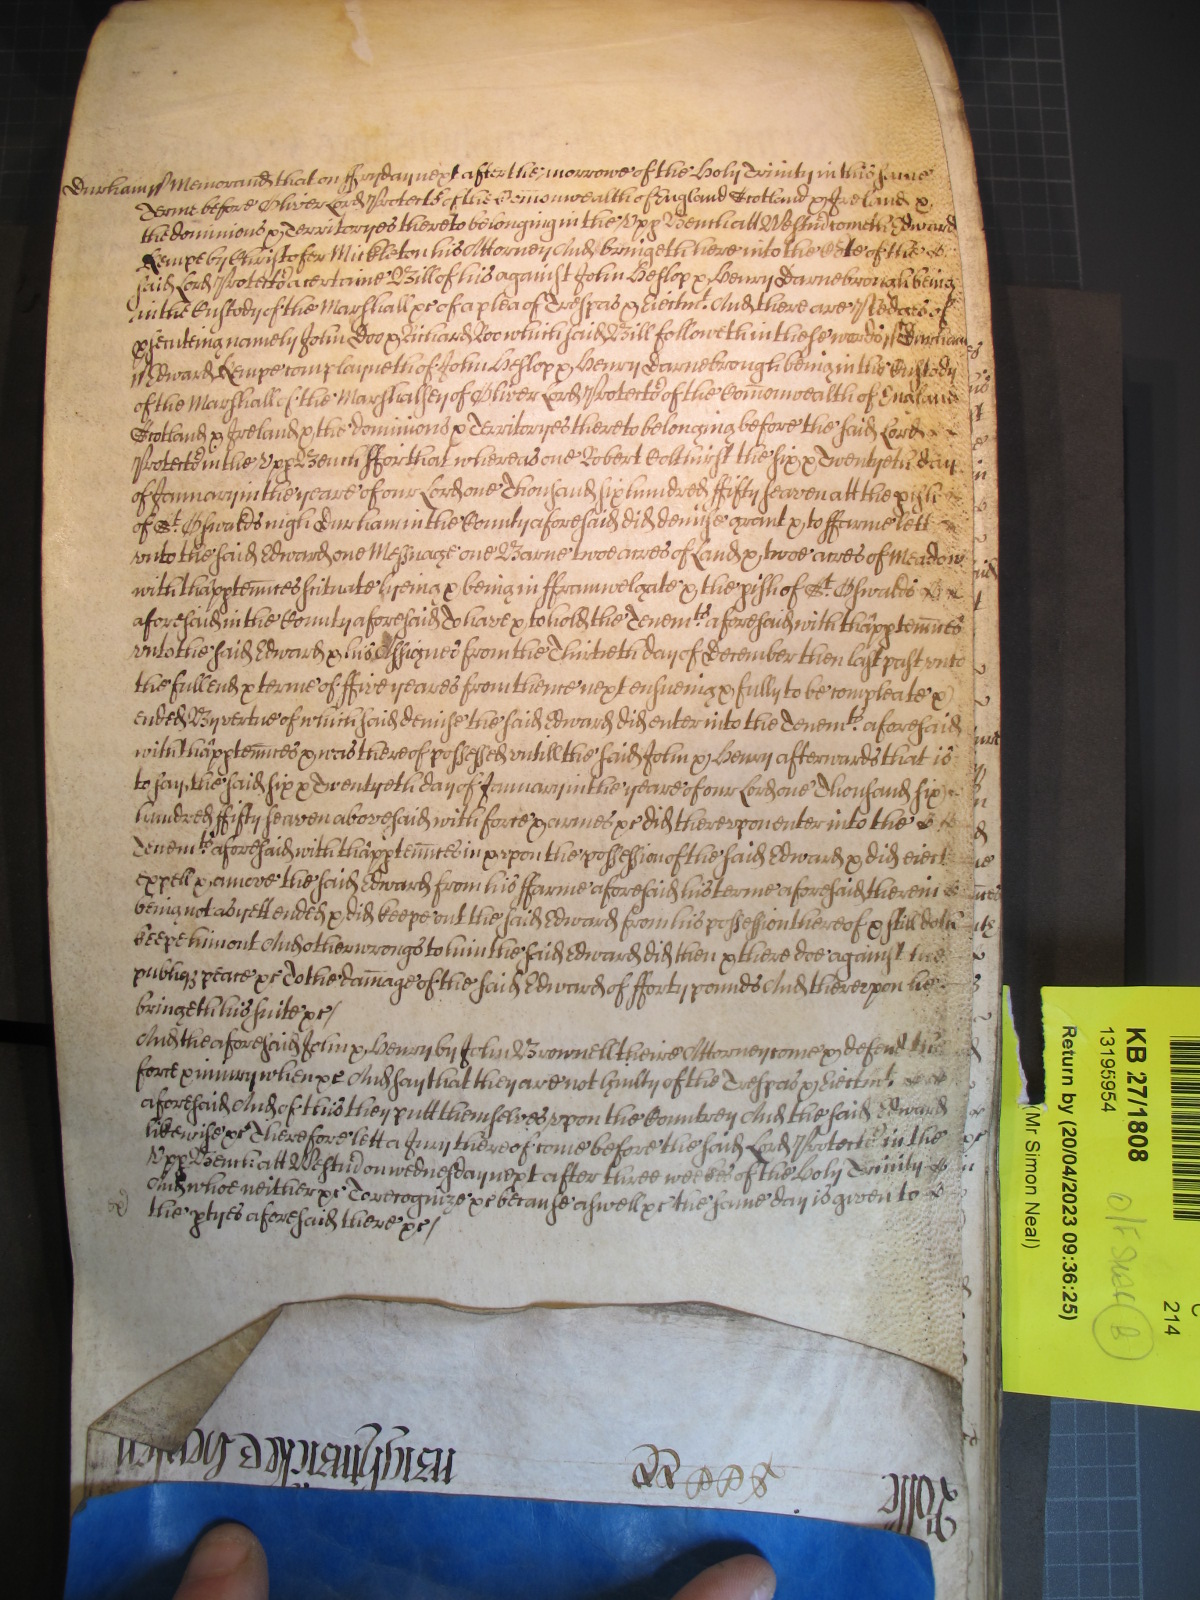 Durham ss Memorand that on ffryday next after the morrowe of the Holy Trinity in this same
Terme before Oliver Lord Protector of the Com̄onwealth of England Scotland & Ireland &
the dominions & Territoryes thereto belonging in the Upp Bench att Westm̄ cometh Edward
Kempe by Christofer Mickleton his Attorney And bringeth here into the Cor̄te of the
said Lord Protector a certaine Bill of his against John Heslopp & Henry Darnebrough being
in the Custody of the Marshall &c of a plea of Trespas & Eiectmt. And there are Pledges of
p̱secuteing namely John Doo & Richard Roo which said Bill followeth in these wordes ss Durham
ss Edward Kempe complayneth of John Heslopp & Henry Darnebrough being in the Custody
of the Marshall of the Marshalsey of Oliver Lord Protector of the Com̄onwealth of England
Scotland & Ireland & the dominions & Territoryes thereto belonging before the said Lord
Protector in the Upp Bench ffor that whereas one Robert Colthirst the six & Twentyeth day
of January in the yeare of our Lord one Thousand six hundred ffifty seaven att the p̱ish
of St. Oswalds nigh Durham in the County aforesaid did demise grant & to ffarme lett
unto the said Edward one Messuage one Barne twoe acres of Land & twoe acres of Meadow
with thapptenn̄ces scituate lyeing & being in fframwelgate & the p̱ish of St. Oswalds
aforesaid in the County aforesaid To have & to hold the Tenemts. aforesaid with thapptenn̄ces
unto the said Edward & his Assignes from the Thirtieth day of December then last past unto
the full end & terme of ffive yeares from thence next ensueing & fully to be compleate &
ended By vertue of which said demise the said Edward did enter into the Tenemts. aforesaid
with thapptenn̄ces & was thereof possessed untill the said John & Henry afterwards that is
to say the said six & Twentyeth day of January in the yeare of our Lord one Thousand six
hundred ffifty seaven abovesaid with force & armes &c did thereupon enter into the
Tenemts. aforesaid with thapptenn̄ces in & upon the possession of the said Edward & did eiect
expell & amove the said Edward from his ffarme aforesaid his terme aforesaid therein
being not as yett ended & did keepe out the said Edward from his possession thereof & still doth
keepe him out And other wrongs to him the said Edward did then & there doe against the
publiq peace &c To the dam̄age of the said Edward of fforty pounds And thereupon he
bringeth his suite &c/
And the aforesaid John & Henry by John Brownell theire Attorney come & defend the
force & iniury when &c And say that they are not Guilty of the Trespas & Eiectmt.
aforesaid And of this they putt themselves upon the Countrey And the said Edward
likewise &c Therefore lett a Jury thereof come before the said Lord Protector in the
Upp Bench att Westm̄ on wednesday next after three weekes of the Holy Trinity
And whoe neither &c To recognize &c because aswell &c the same day is given to
the p̱tyes aforesaid there &c/
Rolle
KB 27/1808
13195954
Return by (20/04/2023 09:36:25)
(Mr Simon Neal)
214
B